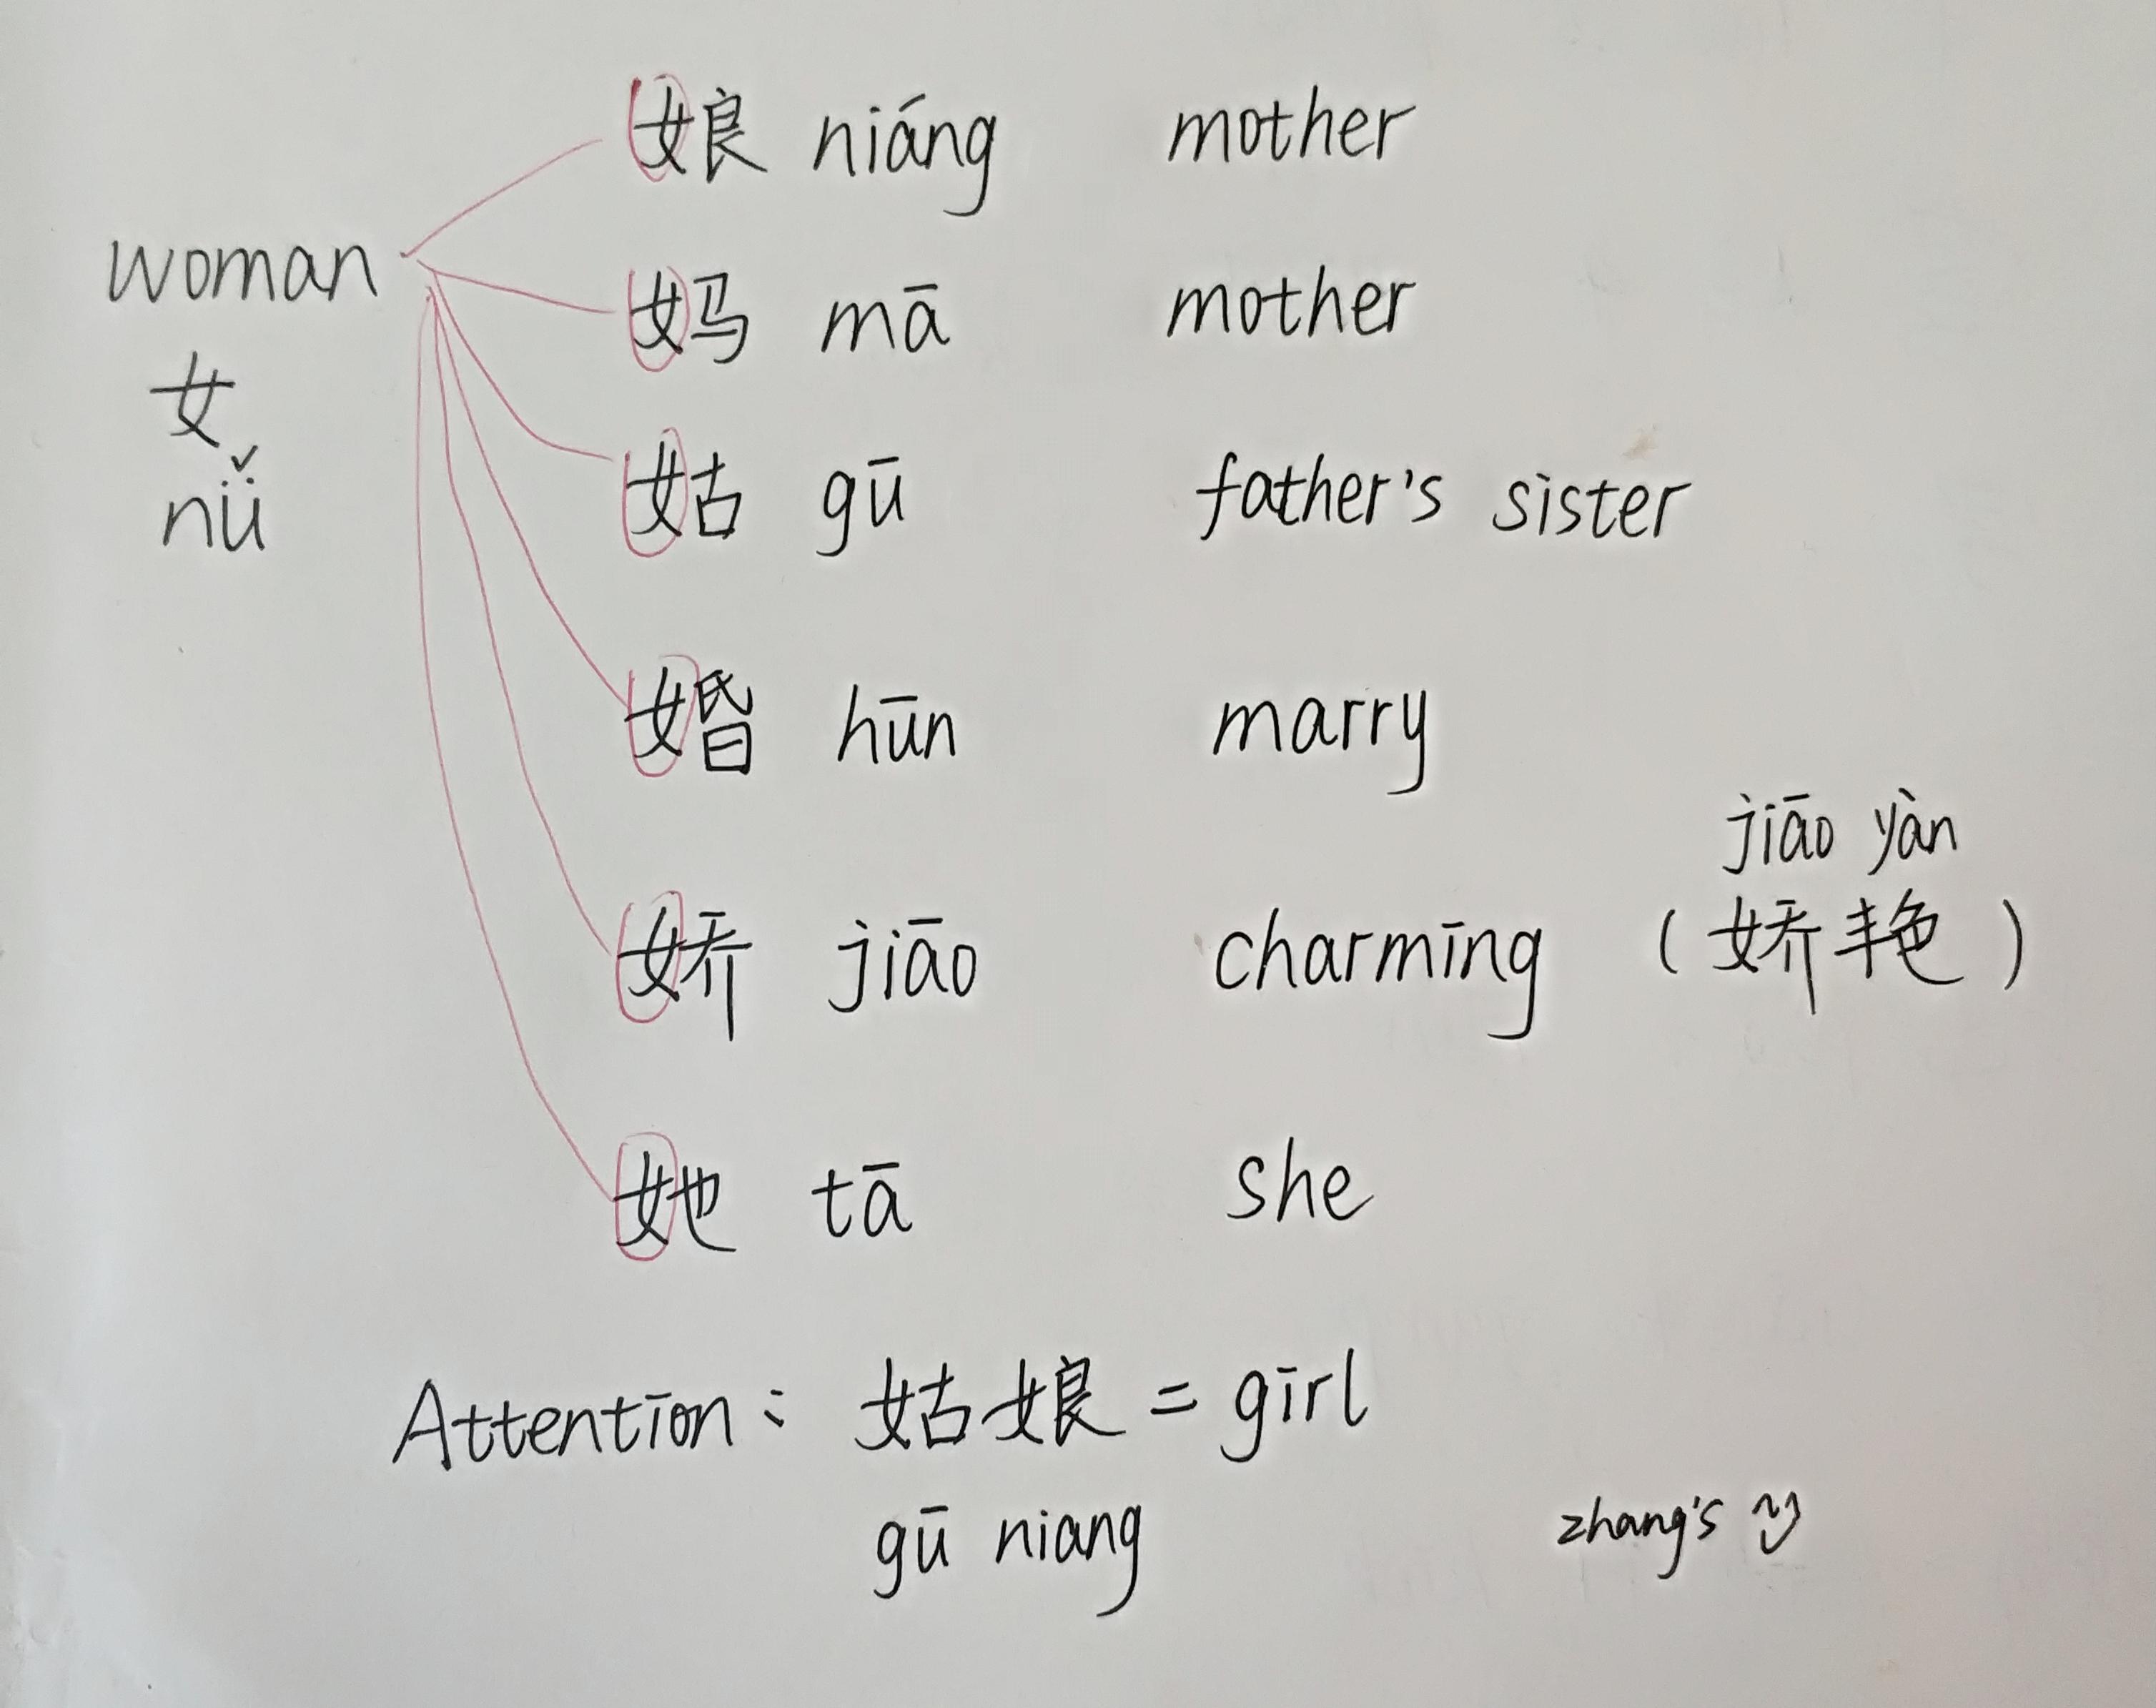 娘 niáng mother
woman
妈 mā mother
女
nǚ
姑 gū father's sister
婚 hūn marry
jiāo yàn
娇 jiāo charming (娇艳)
她 tā she
Attention: 姑娘 = girl
gū niang
zhang's